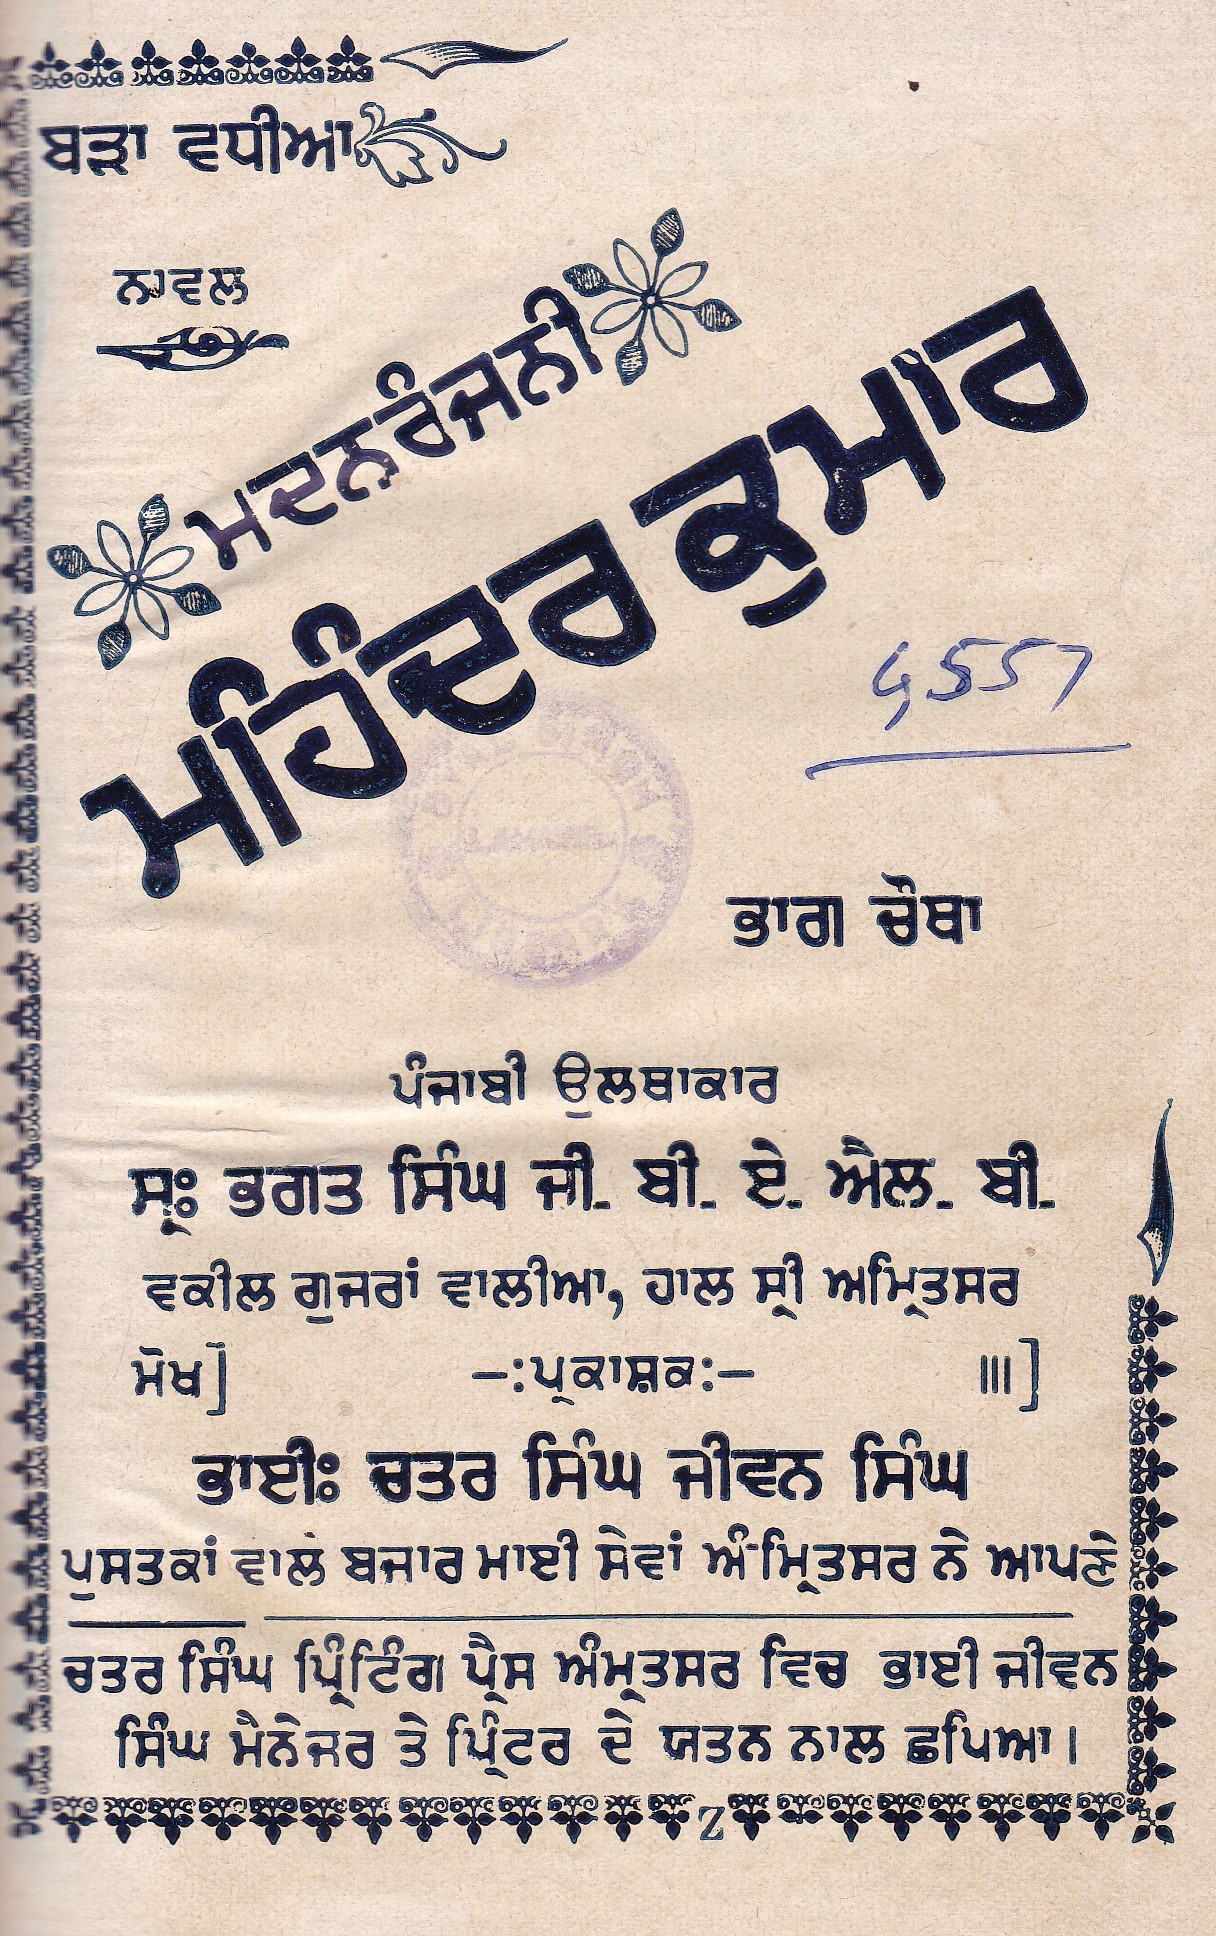 ਬੜਾ ਵਧੀਆ
ਨਾਵਲ
ਮਦਨਰੰਜਨੀ
ਮਹਿੰਦਰ ਕੁਮਾਰ
ਭਾਗ ਚੌਥਾ
ਪੰਜਾਬੀ ਉਲਥਾਕਾਰ
ਸ੍ਰਃ ਭਗਤ ਸਿੰਘ ਜੀ. ਬੀ. ਏ. ਐਲ. ਬੀ.
ਵਕੀਲ ਗੁਜਰਾਂ ਵਾਲੀਆ, ਹਾਲ ਸ੍ਰੀ ਅਮ੍ਰਿਤਸਰ
ਮੋਖ] –:ਪ੍ਰਕਾਸ਼ਕ:– ॥।]
ਭਾਈਃ ਚਤਰ ਸਿੰਘ ਜੀਵਨ ਸਿੰਘ
ਪੁਸਤਕਾਂ ਵਾਲੇ ਬਜਾਰ ਮਾਈ ਸੇਵਾਂ ਅੰਮ੍ਰਿਤਸਰ ਨੇ ਆਪਣੇ
ਚਤਰ ਸਿੰਘ ਪ੍ਰਿੰਟਿੰਗ ਪ੍ਰੈਸ ਅੰਮ੍ਰਤਸਰ ਵਿਚ ਭਾਈ ਜੀਵਨ
ਸਿੰਘ ਮੈਨੇਜਰ ਤੇ ਪ੍ਰਿੰਟਰ ਦੇ ਯਤਨ ਨਾਲ ਛਪਿਆ।